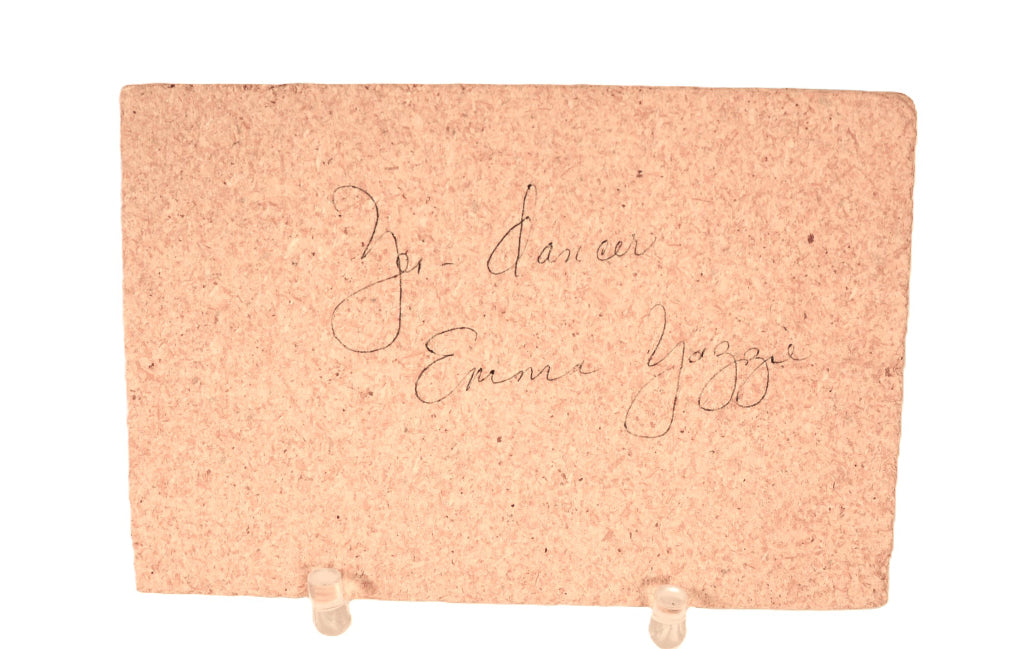 Yei - dancer
Emma Yazzie